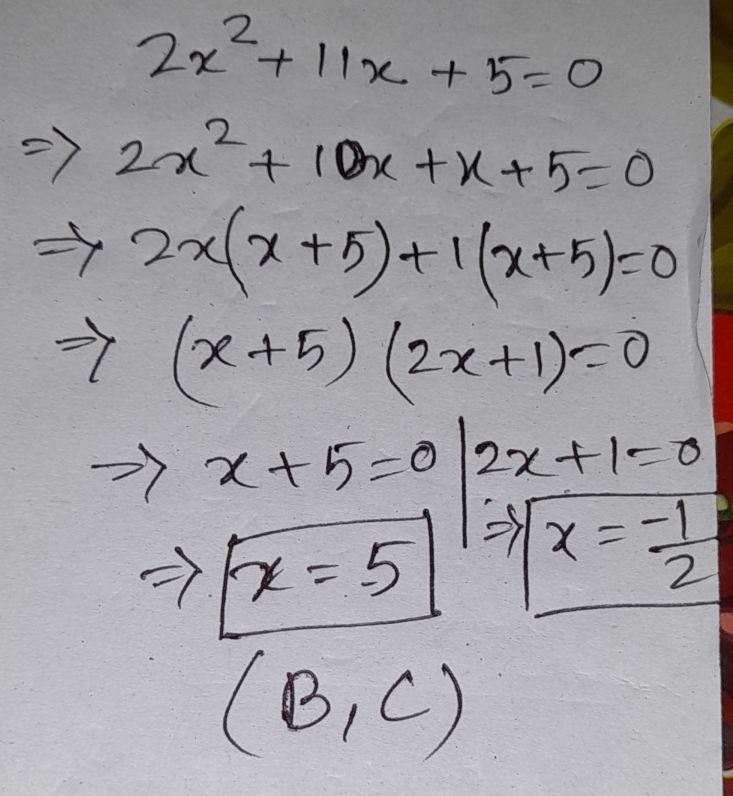 2x² + 11x + 5 = 0
⇒ 2x² + 10x + x + 5 = 0
⇒ 2x(x + 5) + 1(x + 5) = 0
⇒ (x + 5) (2x + 1) = 0
⇒ x + 5 = 0 | 2x + 1 = 0
⇒ x = 5 | ⇒ x = -1/2
(B, C)